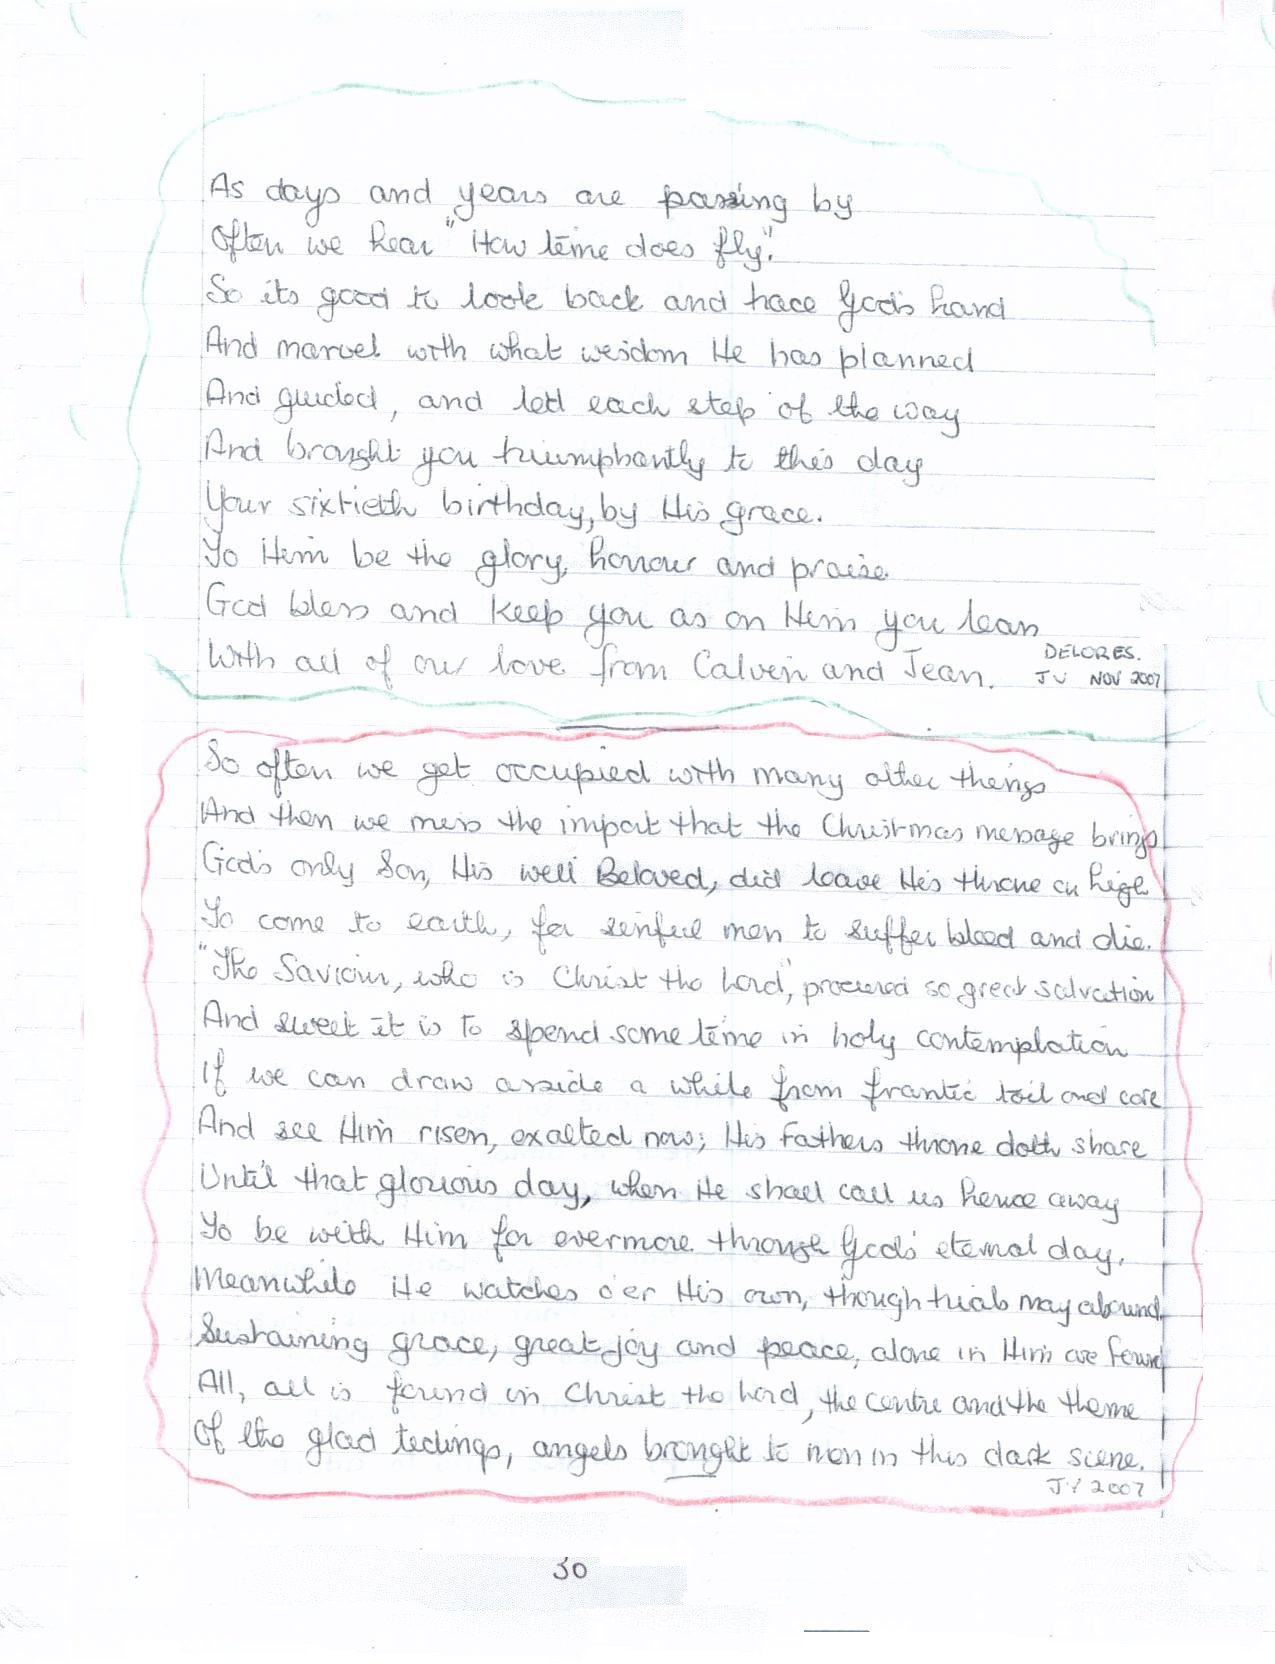 As days and years are passing by
Often we hear "How time does fly".
So its good to look back and trace God's hand
And marvel with what wisdom He has planned
And guided, and led each step of the way
And brought you triumphantly to this day
Your sixtieth birthday, by His grace.
To Him be the glory, honour and praise.
God bless and keep you as on Him you lean
With all of our love from Calvin and Jean.
DELORES.
JY NOV 2007
So often we get occupied with many other things
And then we miss the import that the Christmas message brings
God's only Son, His well Beloved, did leave His throne on high
To come to earth, for sinful men to suffer bleed and die.
"The Saviour, who is Christ the Lord", procured so great salvation
And sweet it is to spend some time in holy contemplation
If we can draw aside a while from frantic toil and care
And see Him risen, exalted now; His Fathers throne doth share
Until that glorious day, when He shall call us hence away
To be with Him for evermore through God's eternal day.
Meanwhile He watches o'er His own, though trials may abound.
Sustaining grace, great joy and peace, alone in Him are found
All, all is found in Christ the Lord, the centre and the theme
Of the glad tidings, angels brought to men in this dark scene.
JY 2007
30